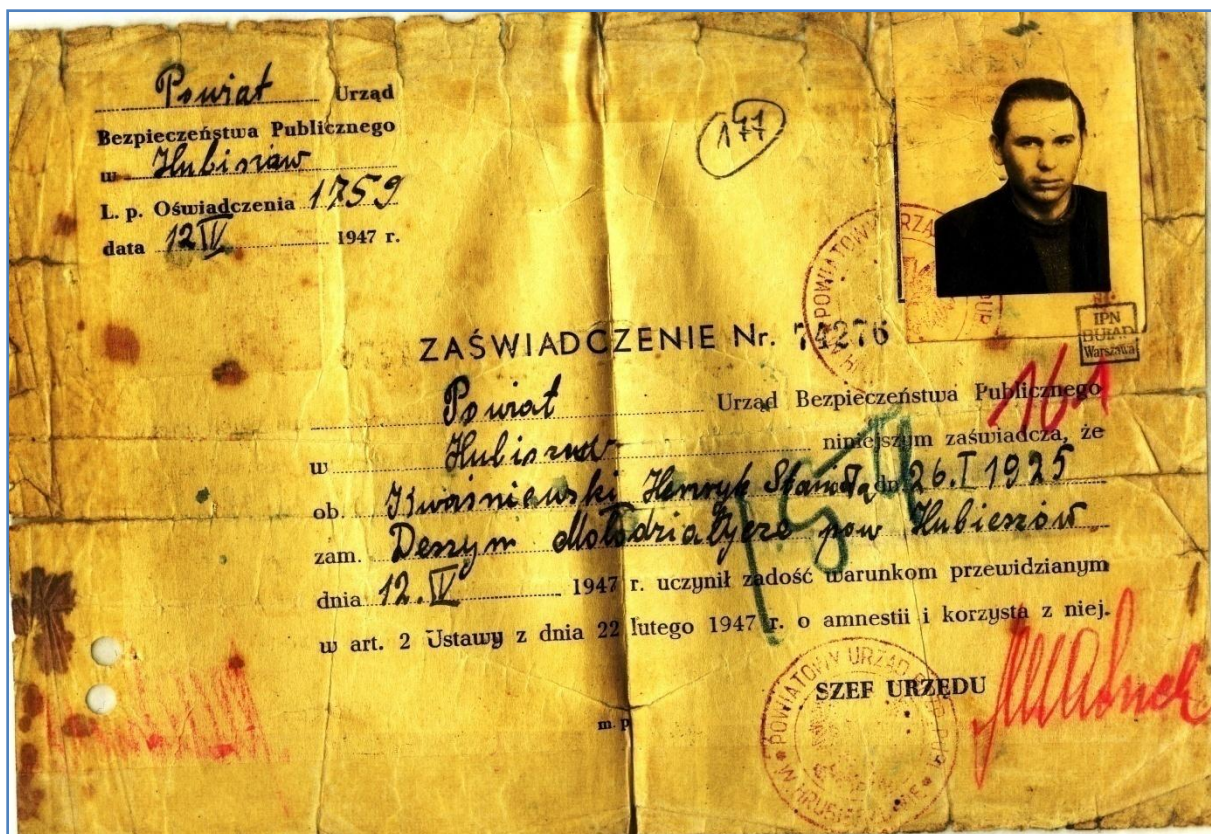 Powiat Urząd
Bezpieczeństwa Publicznego
w Hubiszów
L. p. Oświadczenia 1759
data 12 IV 1947 r.
177
IPN
BUIAD
Warszawa
ZAŚWIADCZENIE Nr. 74276
161
Powiat Urząd Bezpieczeństwa Publicznego
w Hubiszów niniejszym zaświadcza, że
ob. Kwaśniewski Henryk 26.I 1925
zam. pow Hubieszów
dnia 12.IV 1947 r. uczynił zadość warunkom przewidzianym
w art. 2 Ustawy z dnia 22 lutego 1947 r. o amnestii i korzysta z niej.
SZEF URZĘDU
m. p.
POWIATOWY URZĄD